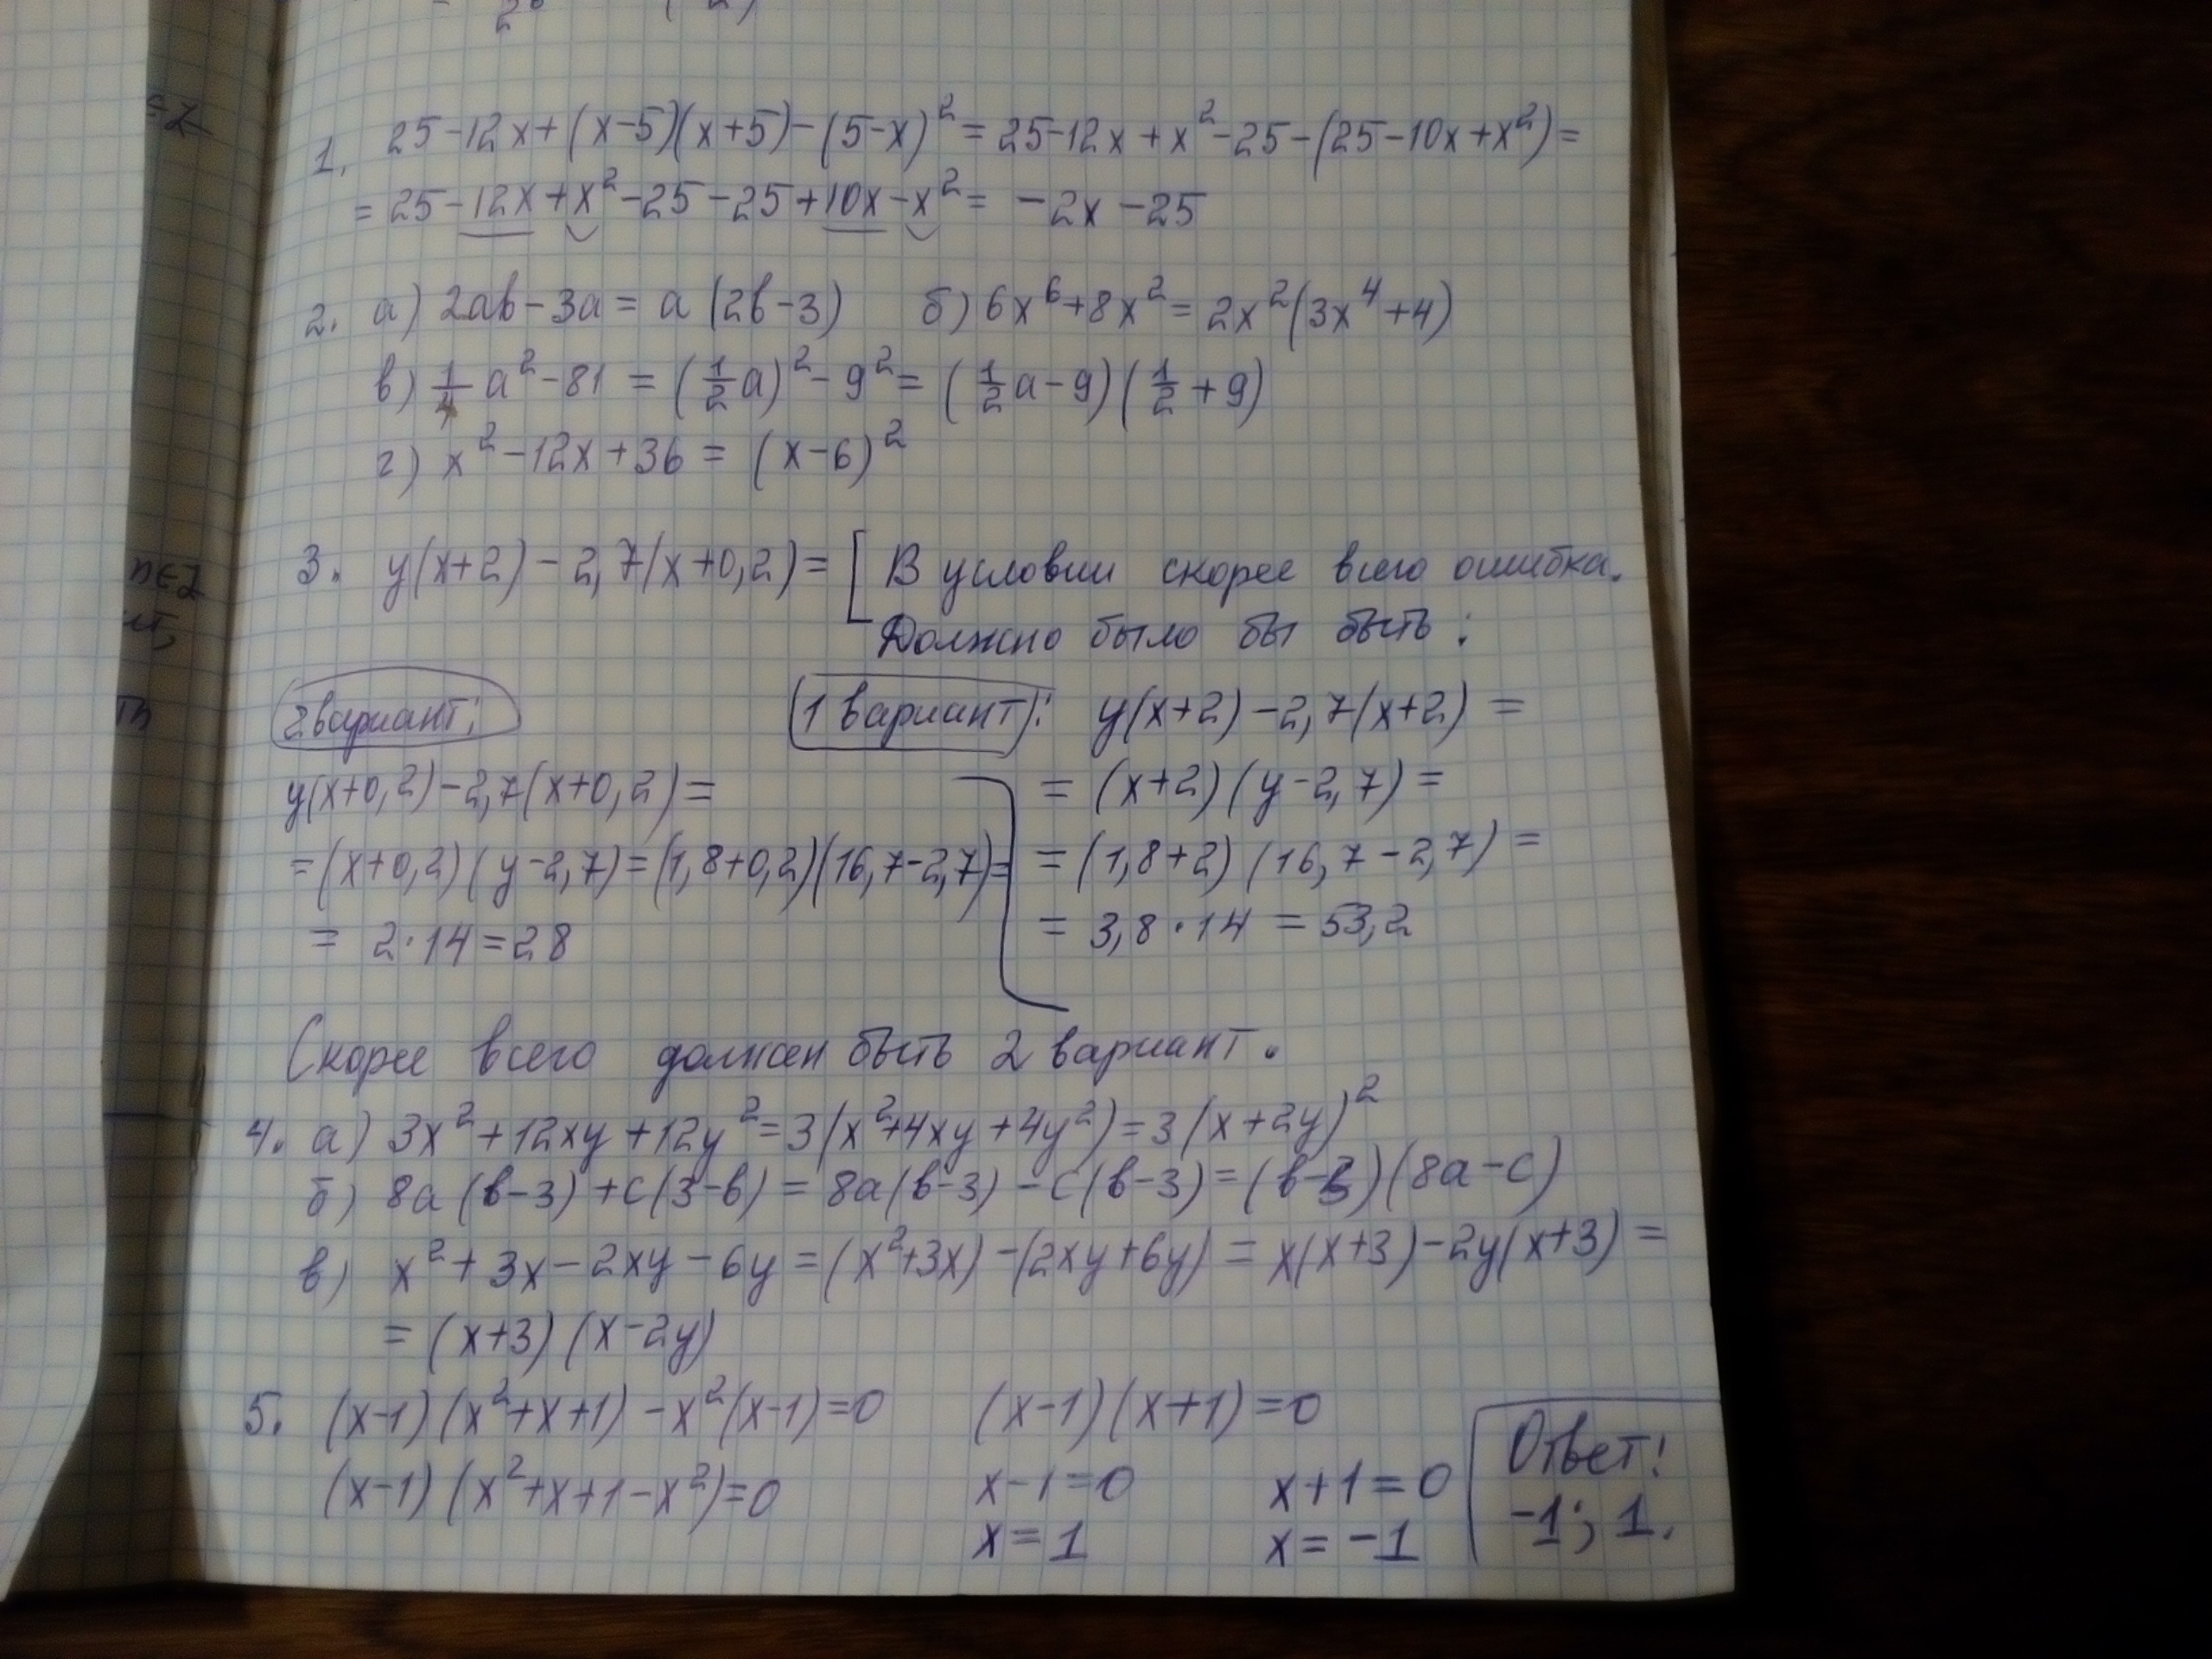 1. 25-12x+(x-5)(x+5)-(5-x)²= 25-12x+x²-25-(25-10x+x²)=
= 25-12x+x²-25-25+10x-x²= -2x-25
2. а) 2ab-3a= a(2b-3) б) 6x⁶+8x²= 2x²(3x⁴+4)
в) 1/4 a²-81 = (1/2 a)²-9²= (1/2 a-9)(1/2 +9)
г) x²-12x+36 = (x-6)²
3. y(x+2)-2,7(x+0,2)= [В условии скорее всего ошибка.
Должно было бы быть:
2 вариант:
y(x+0,2)-2,7(x+0,2)=
=(x+0,2)(y-2,7)=(1,8+0,2)(16,7-2,7)=
= 2·14=28
1 вариант: y(x+2)-2,7(x+2) =
= (x+2)(y-2,7)=
= (1,8+2)(16,7-2,7)=
= 3,8·14 = 53,2
Скорее всего должен быть 2 вариант.
4. а) 3x²+12xy+12y²=3(x²+4xy+4y²)=3(x+2y)²
б) 8a(b-3)+c(3-b) = 8a(b-3)-c(b-3)=(b-3)(8a-c)
в) x²+3x-2xy-6y=(x²+3x)-(2xy+6y)= x(x+3)-2y(x+3)=
= (x+3)(x-2y)
5. (x-1)(x²+x+1)-x²(x-1)=0
(x-1)(x²+x+1-x²)=0
(x-1)(x+1)=0
x-1=0 x+1=0
x=1 x=-1
Ответ:
-1; 1.